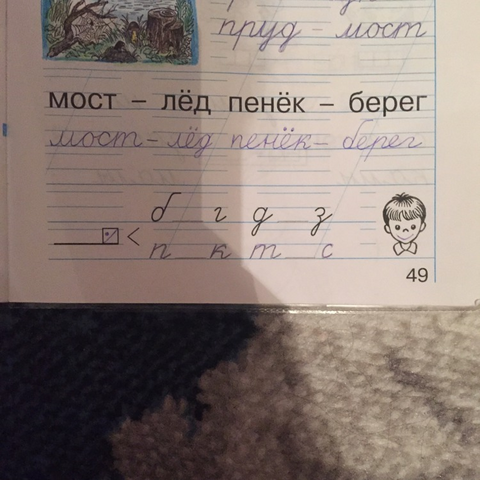 пруд – мост
мост – лёд пенёк – берег
мост – лёд пенёк – берег
б г д з
< п к т с
49